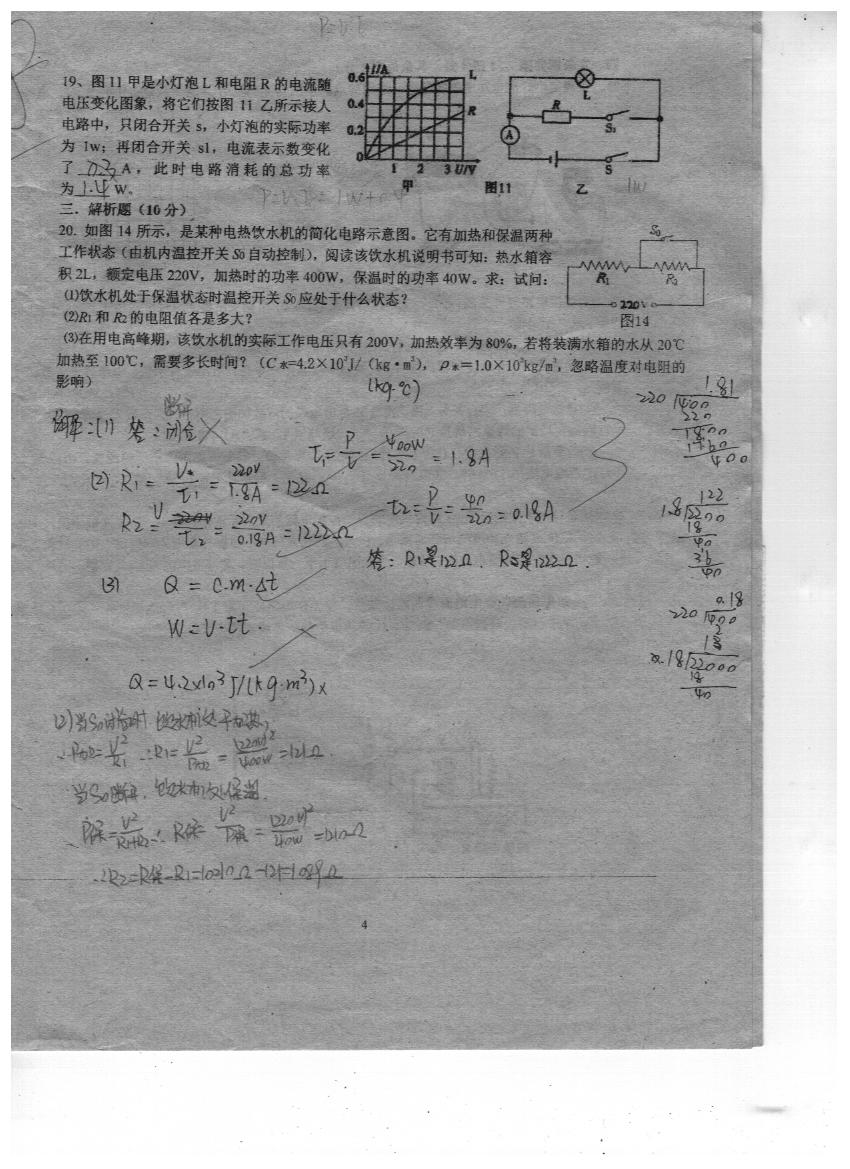 P=U·I
19、图 11 甲是小灯泡 L 和电阻 R 的电流随
电压变化图象，将它们按图 11 乙所示接人
电路中，只闭合开关 s，小灯泡的实际功率
为 1w；再闭合开关 s1，电流表示数变化
了 0.2 A，此时电路消耗的总功率
为 1.4 W。
I/A
0.6
0.4
0.2
0
1 2 3 U/V
L
R
甲
图11
L
R
S₁
A
S
乙
1W
三．解析题（10 分）
20. 如图 14 所示，是某种电热饮水机的简化电路示意图。它有加热和保温两种
工作状态（由机内温控开关 S₀ 自动控制），阅读该饮水机说明书可知：热水箱容
积 2L，额定电压 220V，加热时的功率 400W，保温时的功率 40W。求：试问：
⑴饮水机处于保温状态时温控开关 S₀ 应处于什么状态？
⑵R₁ 和 R₂ 的电阻值各是多大？
S₀
R₁ R₂
220V
图14
⑶在用电高峰期，该饮水机的实际工作电压只有 200V，加热效率为 80%，若将装满水箱的水从 20℃
加热至 100℃，需要多长时间？（C水=4.2×10³J/（kg·m³），ρ水=1.0×10³kg/m³，忽略温度对电阻的
影响）
(kg·℃)
断开
解：(1) 答：闭合
I₁=P/U=400W/220=1.8A
(2) R₁=U/I₁=220V/1.8A=122Ω
I₂=P/U=40/220=0.18A
R₂=U/I₂=220V/0.18A=1222Ω
答：R₁是122Ω．R₂是1222Ω．
(3) Q=C·m·Δt
W=U·It．
Q=4.2×10³J/(kg·m³)×
(2)当S₀闭合时，饮水机处于加热，
∴P加=U²/R₁ ∴R₁=U²/P加=(220V)²/400W=121Ω
当S₀断开，饮水机处于保温．
P保=U²/R₁+R₂ ∴R保=U²/P保=(220V)²/40W=1210Ω
∴R₂=R保-R₁=1210Ω-121=1089Ω
4